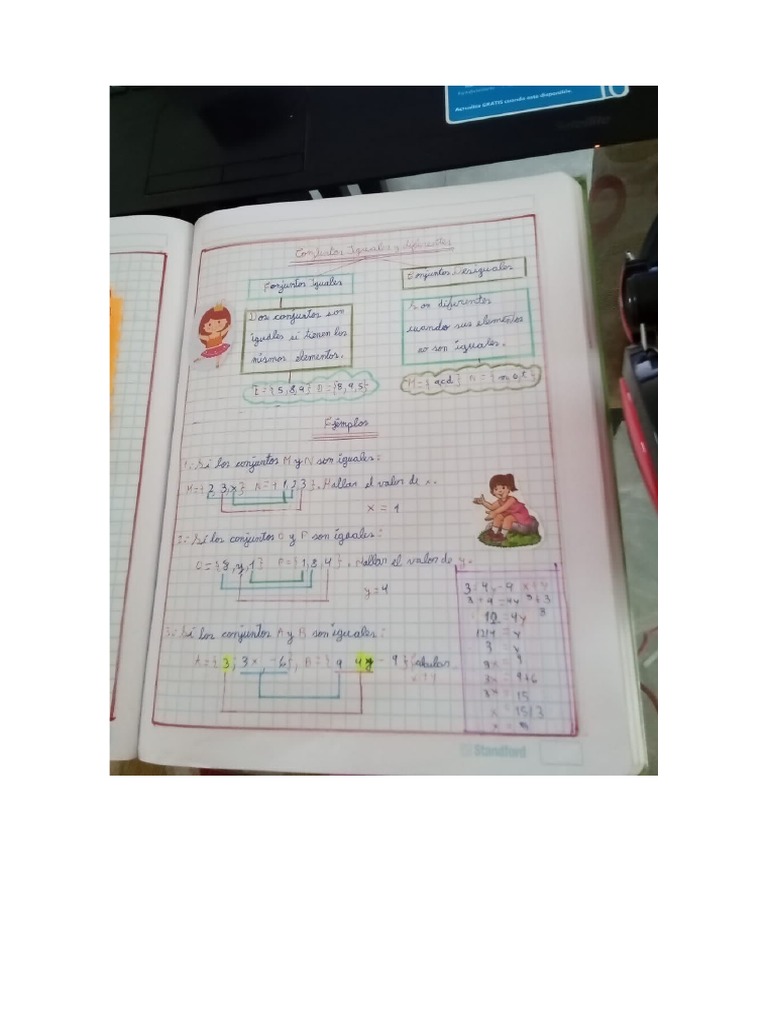 Recuklic GRATIS cuando este disposición
Conjuntos Iguales y diferentes
Conjuntos Iguales
Conjuntos Desiguales
Dos conjuntos son
iguales si tienen los
mismos elementos.
Son diferentes
cuando sus elementos
no son iguales.
E = {5,8,9} D = {8,9,5}
M = {acd} N = {
Ejemplos
1.- Si los conjuntos M y N son iguales:
M = {2,3,x} N = {1,2,3}. Hallar el valor de x.
x = 1
2.- Si los conjuntos O y P son iguales:
O = {8,y,1} P = {1,8,4}. Hallar el valor de y.
y = 4
3.- Si los conjuntos A y B son iguales:
A = {3; 3x, -6}, B = {9 4y - 9} Calcular
x + y
3 = 4y - 9
3 + 9 = 4y
12 = 4y
12/4 = y
3 = y
= 9
3x = 9+6
3x = 15
x = 15/3
x = 5
Standford